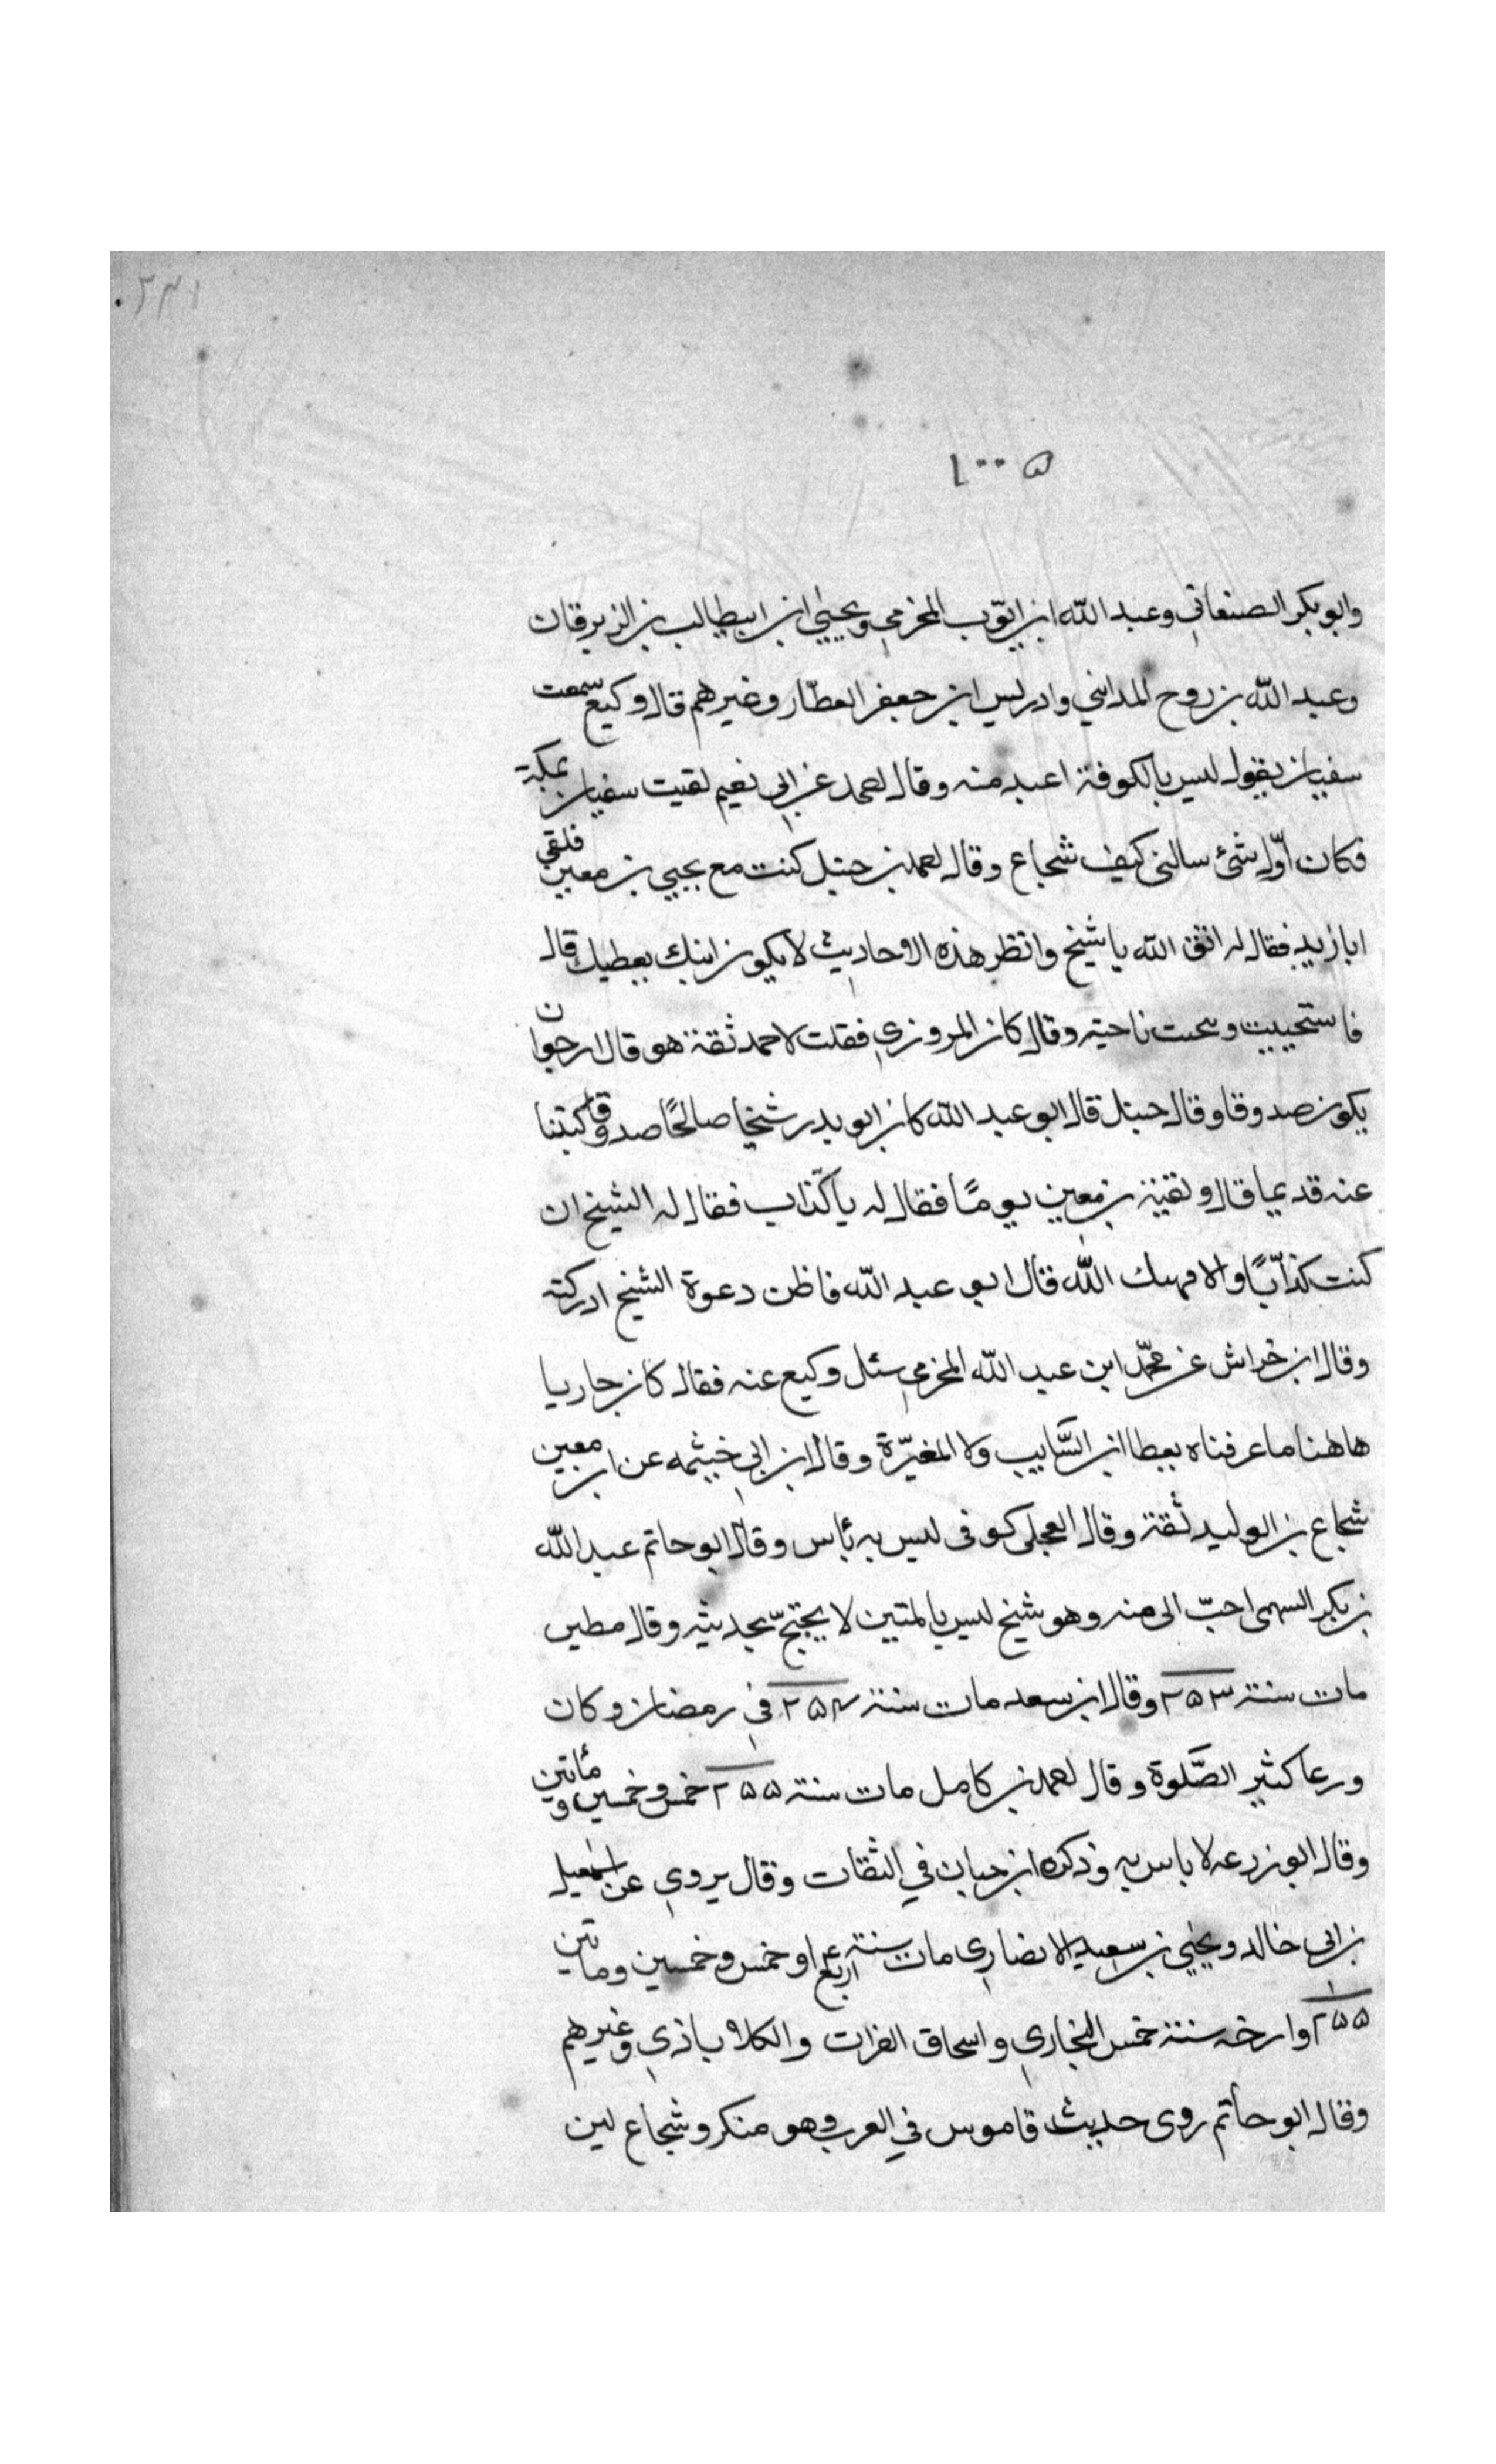 ١٠٠٥
وابو بكر الصنعاني وعبد الله ابن ايّوب المخزمي ويحيى ابن ابيطالب بن الزبرقان
وعبد الله بن روح المدايني وادريس ابن جعفر العطّار وغيرهم قال وكيع سمعت
سفيان يقول ليس بالكوفة اعبد منه وقال احمد عن ابي نعيم لقيت سفيان بمكة
فكان اوّل شئ سالني كيف شجاع وقال احمد بن حنبل كنت مع يحيى بن معين فلقى
ابا زيد فقال له اتق الله يا شيخ وانظر هذه الاحاديث لا يكون ابنك يعطيك قال
فاستحييت وسحت ناحيته وقال كان المروزي فقلت لاحمد ثقة هو قال ارجوا ن
يكون صدوقا وقال حنبل قال ابو عبد الله كان ابو بدر شيخا صالحًا صدوقا كتبنا
عنه قديما قال ولقيه بن معين يومًا فقال له يا كذّاب فقال له الشيخ ان
كنت كذّابًا والا فهتك الله قال ابو عبد الله فاظن دعوة الشيخ ادركته
وقال ابن خراش عن محمّد ابن عبد الله المخزمي سئل وكيع عنه فقال كان جاريا
هاهنا ما عرفناه بعطا ابن السَّايب ولا المغيّرة وقال ابن ابي خيثمه عن ابن معين
شجاع بن الوليد ثقة وقال العجلى كوفى ليس به بأس وقال ابو حاتم عبد الله
بن بكر السهمى احبّ الى منه وهو شيخ ليس بالمتين لا يحتجّ بحديثه وقال مطين
مات سنة ٢٥٣ وقال ابن سعد مات سنة ٢٥٤ في رمضان وكان
ورعا كثير الصَّلوة وقال احمد بن كامل مات سنة ٢٥٥ خمس وخمسين و مأتين
وقال ابو زرعه لا باس به وذكره ابن حبان في الثقات وقال يروي عن اسمعيل
بن ابى خالد ويحيى بن سعيد الانصارى مات سنة اربع او خمس وخمسين وماتين
٢٥٥ وارخه سنة خمس البخاري واسحاق القراب والكلاباذي وغيرهم
وقال ابو حاتم روى حديث قاموس في العرب وهو منكر وشجاع لين